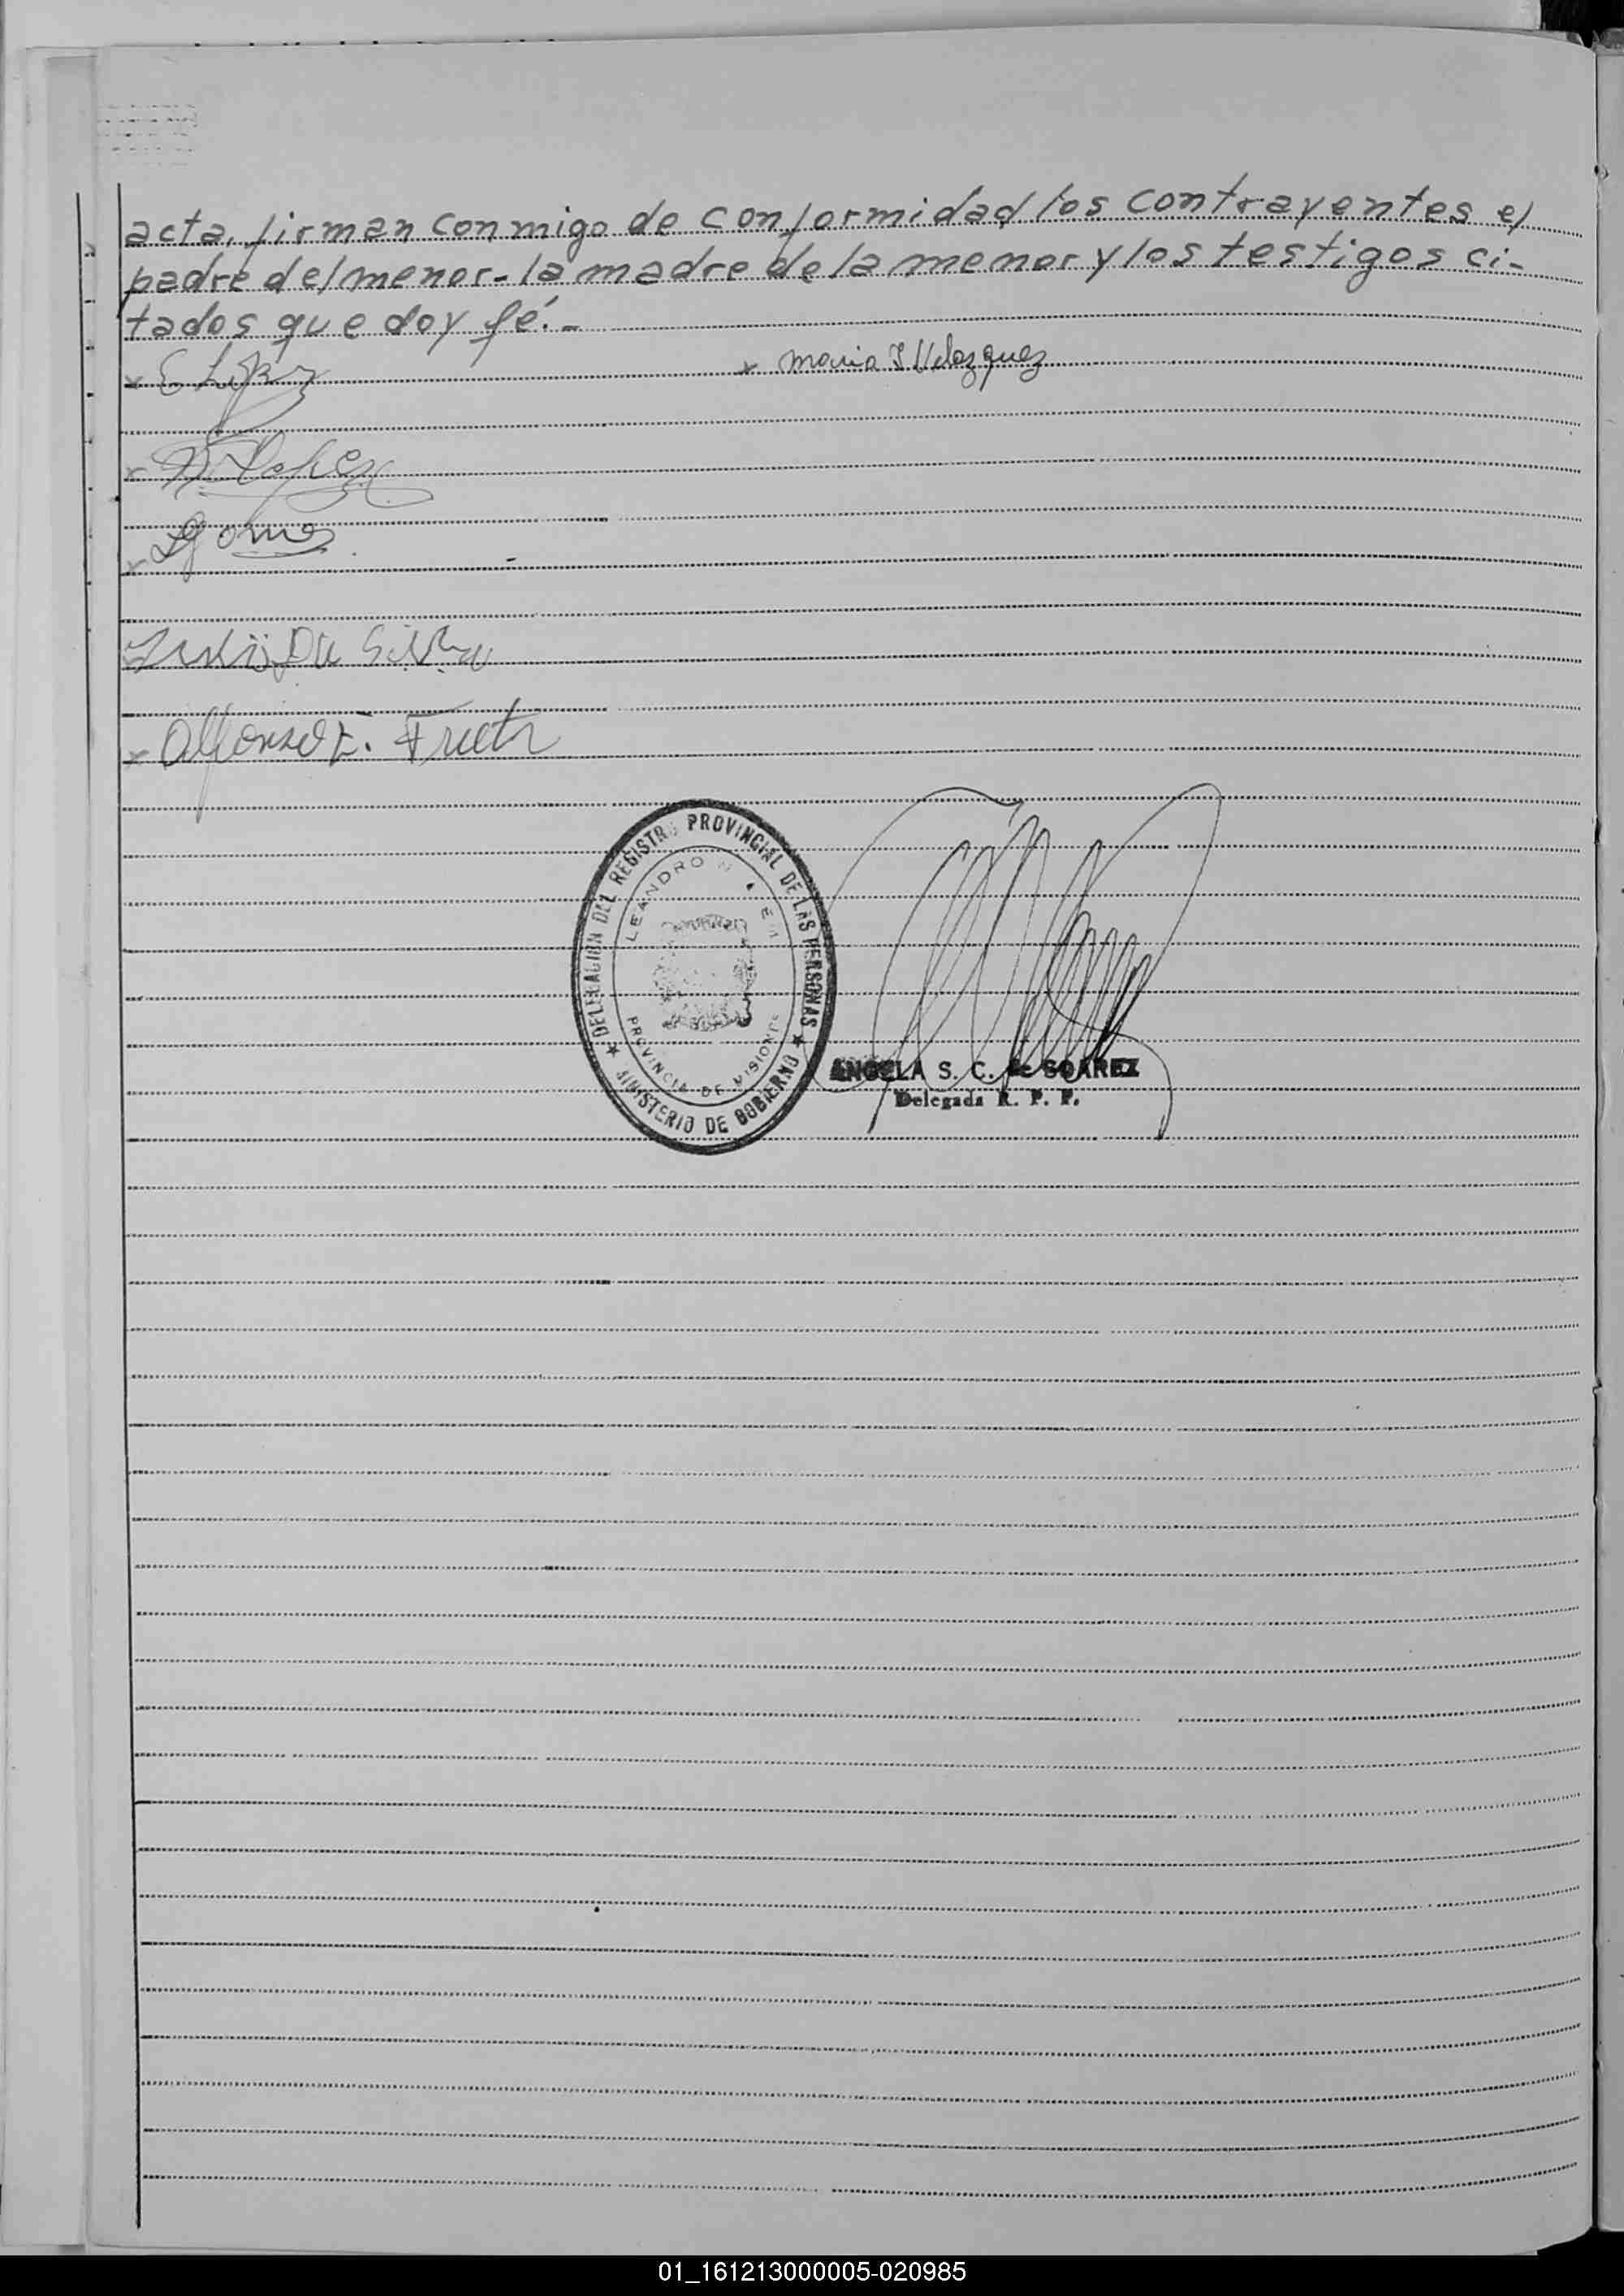 acta, firman conmigo de conformidad los contrayentes el
padre del menor - la madre de la menor y los testigos ci-
tados que doy fé. -
x E López
x Maria I Velazquez
x Lopez
x
Da Silva
x Alfonso F.
DELEGACION DEL REGISTRO PROVINCIAL DE LAS PERSONAS
LEANDRO N
PROVINCIA DE MISIONES
★ MINISTERIO DE GOBIERNO ★
ANGELA S. C. de SOAREZ
Delegada R. P. P.
01_161213000005-020985